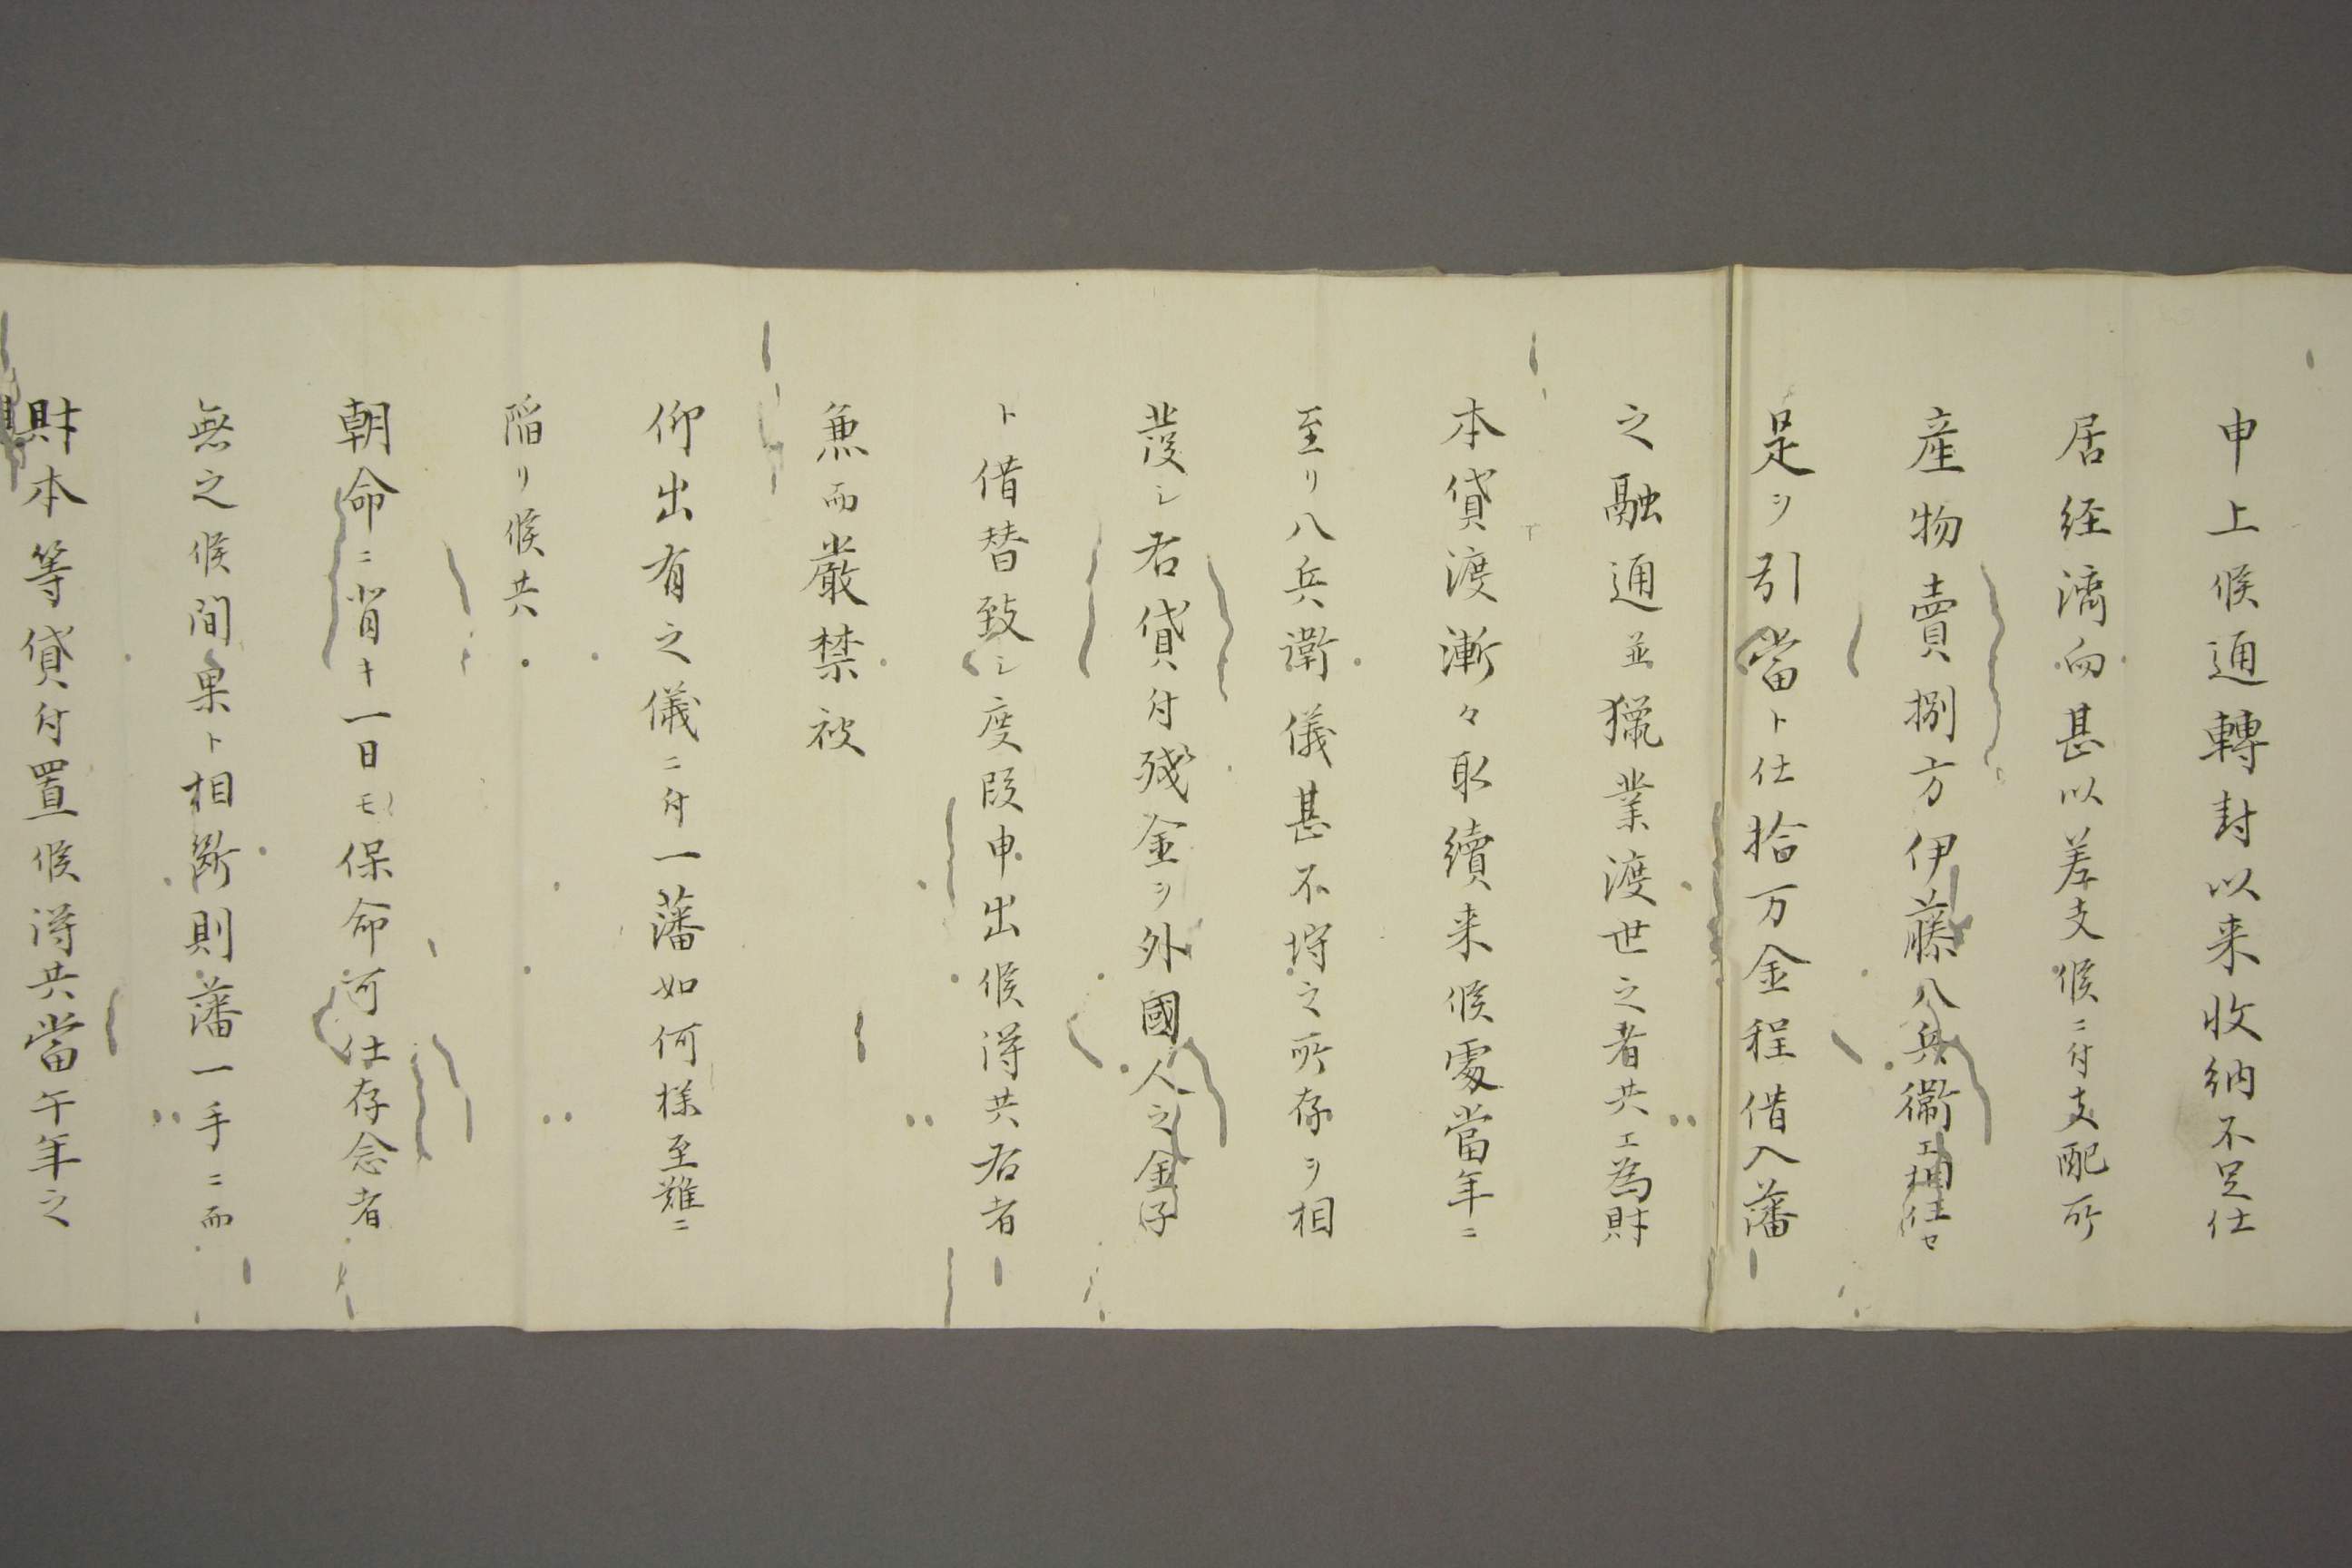 申上候通轉封以来收納不足仕
居経濟向甚以差支候ニ付支配所
産物賣捌方伊藤八兵衞エ相任セ
是ヲ引當ト仕拾万金程借入藩
之融通並獵業渡世之者共エ為財
本貸渡漸々取續来候處當年ニ
至リ八兵衞儀甚不埒之所存ヲ相
發シ右貸付殘金ヲ外國人之金子
ト借替致シ度段申出候得共右者
兼而嚴禁被
仰出有之儀ニ付一藩如何様至難ニ
陥リ候共
朝命ニ背キ一日モ保命可仕存念者
無之候間果ト相斷則藩一手ニ而
財本等貸付置候得共當午年之